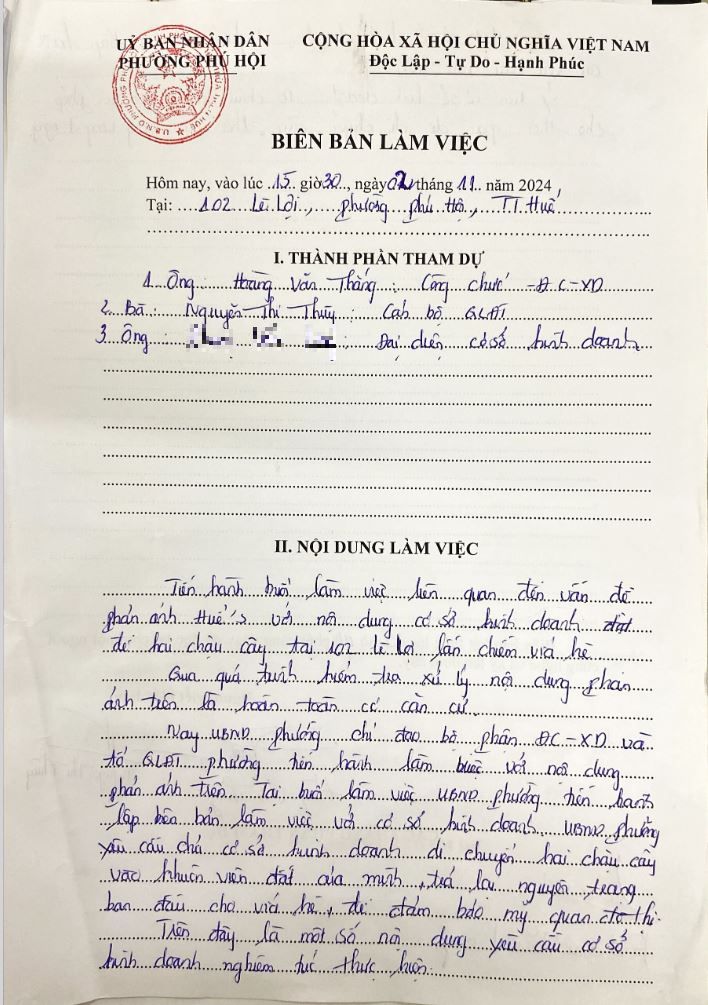 UỶ BAN NHÂN DÂN
PHƯỜNG PHÚ HỘI
CỘNG HÒA XÃ HỘI CHỦ NGHĨA VIỆT NAM
Độc Lập - Tự Do - Hạnh Phúc
BIÊN BẢN LÀM VIỆC
Hôm nay, vào lúc 15 giờ 30, ngày 02 tháng 11 năm 2024,
Tại: 102 Lê Lợi, phường Phú Hội, TT Huế
I. THÀNH PHẦN THAM DỰ
1. Ông: Hoàng Văn Thắng: Công chức ĐC-XD
2. Bà: Nguyễn Thị Thủy: Cán bộ QLĐT
3. Ông: : Đại diện cơ sở kinh doanh
II. NỘI DUNG LÀM VIỆC
Tiến hành buổi làm việc liên quan đến vấn đề
phản ánh Huế-S với nội dung cơ sở kinh doanh đặt
để hai chậu cây tại 102 Lê Lợi lấn chiếm vỉa hè
Qua quá trình kiểm tra xử lý nội dung phản
ánh trên là hoàn toàn có căn cứ
Nay UBND phường chỉ đạo bộ phận ĐC-XD và
tổ QLĐT phường tiến hành làm việc với nội dung
phản ánh trên. Tại buổi làm việc UBND phường tiến hành
lập biên bản làm việc với cơ sở kinh doanh. UBND phường
yêu cầu chủ cơ sở kinh doanh di chuyển hai chậu cây
vào khuôn viên đất của mình, trả lại nguyên trạng
ban đầu cho vỉa hè, để đảm bảo mỹ quan đô thị.
Trên đây là một số nội dung yêu cầu cơ sở
kinh doanh nghiêm túc thực hiện.